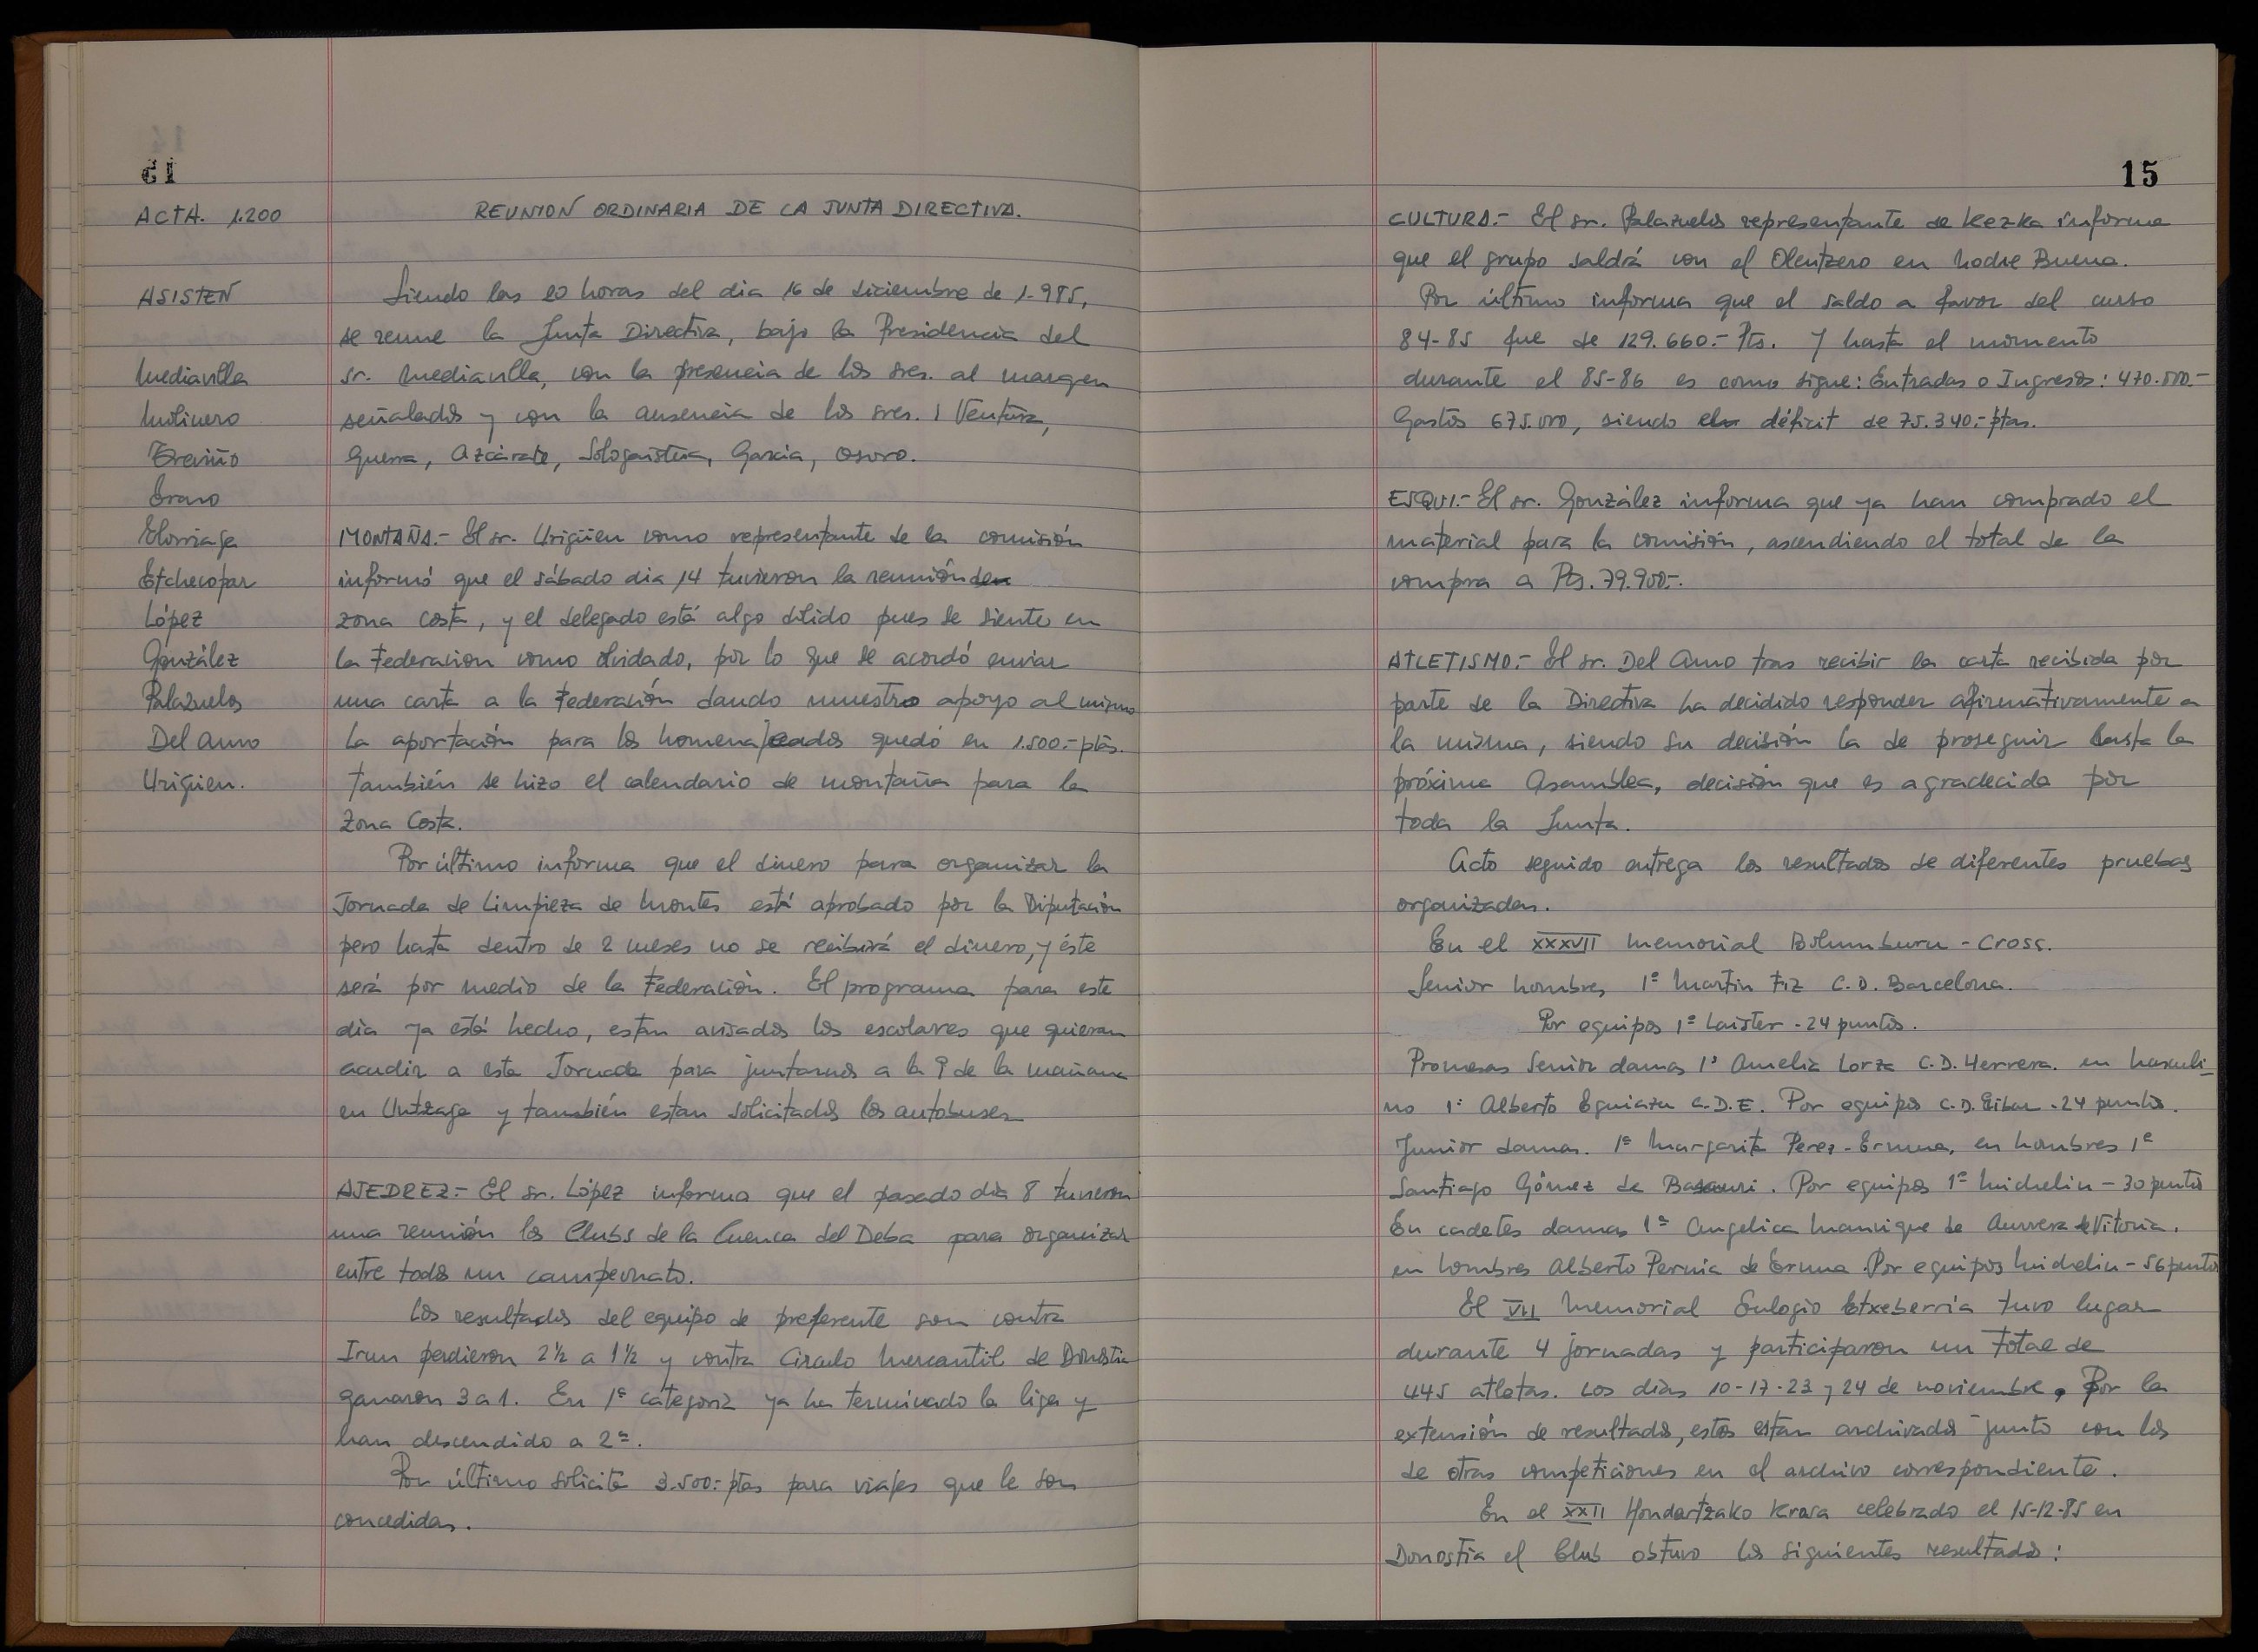 ACTA. 1.200
REUNION ORDINARIA DE LA JUNTA DIRECTIVA.
ASISTEN
Mediavilla
Molinero
Treviño
Bravo
Elorriaga
Etchecopar
López
González
Palazuelos
Del Amo
Urigüen.
Siendo las 20 horas del dia 16 de diciembre de 1.985,
se reune la Junta Directiva, bajo la Presidencia del
sr. Mediavilla, con la presencia de los sres. al margen
señalados y con la ausencia de los sres. : Ventura,
Guerra, Azcárate, Sologaistua, Garcia, Osoro.
MONTAÑA.- El sr. Urigüen como representante de la comisión
informó que el sábado dia 14 tuvieron la reunión de
zona costa, y el delegado está algo dolido pues se siente en
la Federacion como olvidado, por lo que se acordó enviar
una carta a la Federación dando nuestro apoyo al mismo
La aportación para los homenajeados quedó en 1.500.- ptas.
también se hizo el calendario de montaña para la
Zona Costa.
Por último informa que el dinero para organizar la
Jornada de Limpieza de Montes está aprobado por la Diputación
pero hasta dentro de 2 meses no se recibirá el dinero, y éste
será por medio de la Federación. El programa para este
dia ya está hecho, estan avisados los escolares que quieran
acudir a esta Jornada para juntarnos a la 9 de la mañana
en Untzaga y también estan solicitados los autobuses
AJEDREZ.- El sr. López informa que el pasado dia 8 tuvieron
una reunión los Clubs de la Cuenca del Deba para organizar
entre todos un campeonato.
Los resultados del equipo de preferente son contra
Irun perdieron 2½ a 1½ y contra Circulo Mercantil de Donostia
ganaron 3 a 1. En 1ª categoria ya ha terminado la liga y
han descendido a 2ª.
Por último solicita 3.500.- ptas para viajes que le son
concedidas.
15
CULTURA.- El sr. Palazuelos representante de Kezka informa
que el grupo saldrá con el Olentzero en Noche Buena.
Por último informa que el saldo a favor del curso
84-85 fue de 129.660.- Pts. Y hasta el momento
durante el 85-86 es como sigue: Entradas o Ingresos: 470.000.-
Gastos 675.000, siendo el déficit de 75.340.- ptas.
ESQUI.- El sr. González informa que ya han comprado el
material para la comisión, ascendiendo el total de la
compra a Pts. 79.900.-
ATLETISMO.- El sr. Del Amo tras recibir la carta recibida por
parte de la Directiva ha decidido responder afirmativamente a
la misma, siendo su decisión la de proseguir hasta la
próxima Asamblea, decisión que es agradecida por
toda la Junta.
Acto seguido entrega los resultados de diferentes pruebas
organizadas.
En el XXXVII Memorial Bolumburu - Cross.
Senior hombres 1º Martin Fiz C.D. Barcelona.
Por equipos 1º Laister - 24 puntos.
Promesas Senior damas 1ª Amelia Lorza C.D. Herrera. en Masculi-
no 1º Alberto Eguiazu C.D.E. Por equipos C.D. Eibar - 24 puntos.
Junior damas. 1ª Margarita Perez - Ermua, en hombres 1º
Santiago Gómez de Basauri. Por equipos 1º Michelin - 30 puntos
En cadetes damas 1ª Angelica Manrique de Aurrera de Vitoria.
en hombres Alberto Pernia de Ermua. Por equipos Michelin - 56 puntos
El VII Memorial Eulogio Etxeberria tuvo lugar
durante 4 jornadas y participaron un total de
445 atletas. Los dias 10-17-23 y 24 de noviembre, Por la
extensión de resultados, estos estan archivados junto con los
de otras competiciones en el archivo correspondiente.
En el XXII Hondartzako Krosa celebrado el 15-12-85 en
Donostia el Club obtuvo los siguientes resultados: